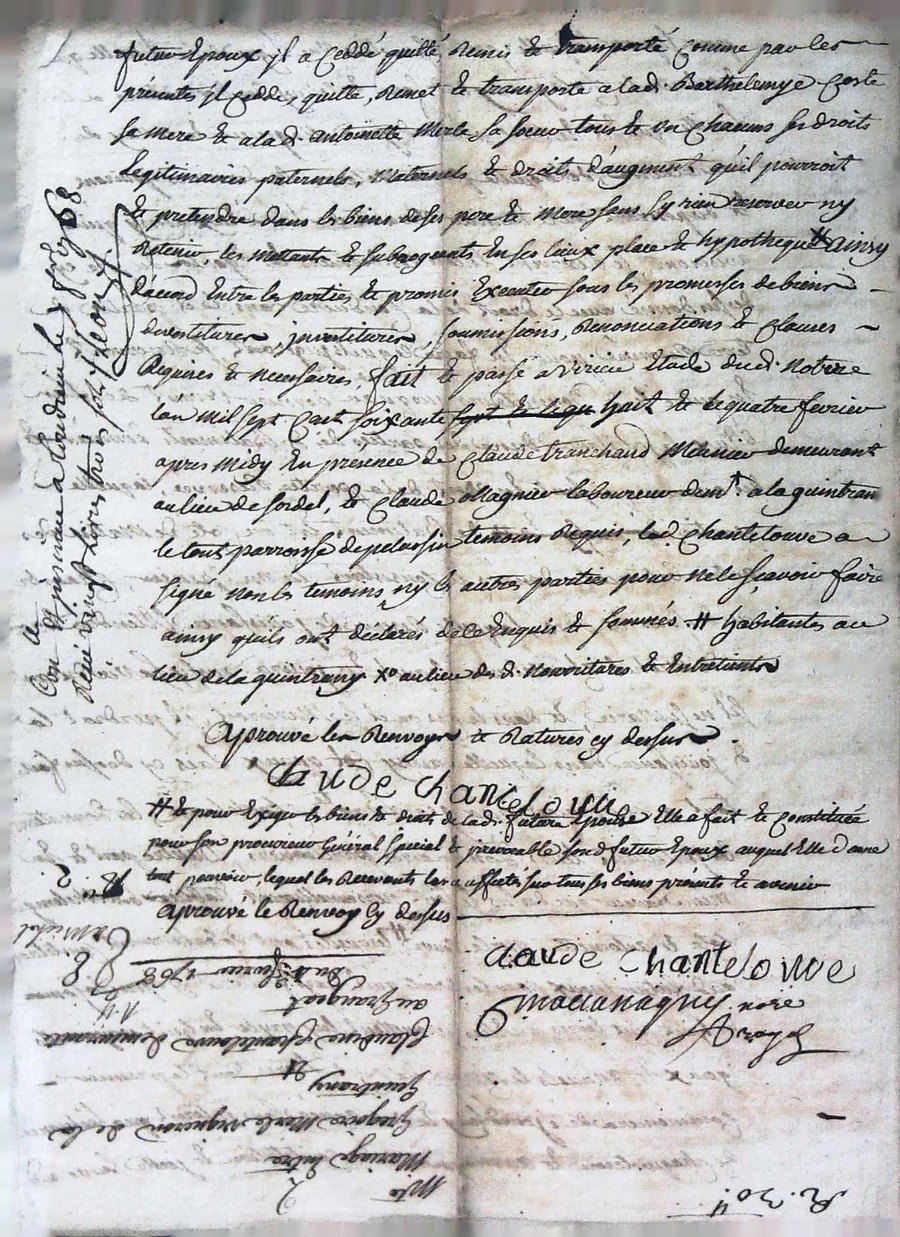 futur Epoux il a Ceddé quitté, Remis & transporté Comme par les
présentes il Cedde, quitte, Remet & transporte a lad. Barthelemye Coste
sa mere & a lad. antoinette Merle sa soeur tous & un Chacuns ses droits
Legitimaires paternels, Maternels & droits d'augment qu'il pourroit
& pretendre dans les biens de ses pere & mere sans sy rien reserver ny
Retenir, les mettants & subrogeants En ses lieux place & hypotheque # ainsy
d'acord Entre les parties & promis Executer sous les promesses de biens
devestitures, investitures, soumissions, Renonciations & Clauses
Requises & necessaires, fait & passé a virieu Etude dud. Notaire
l'an mil sept Cent soixante huit & le quatre fevrier
apres Midy En présence de Claude tranchand Meunier demeurant
au lieu de sordel, & Claude Magnier laboureur demt. a la quintran
le tout parroisse de pelussin temoins Requis, led. Chantelouve a
signé non les temoins ny les autres parties pour ne le sçavoir faire
ainsy quils ont déclarés de ce Enquis & sommés. # habitantes au
lieu de la quintrany Xo au lieu des d. Nourritures & Entretients
Aprouvé les Renvoys & Ratures cy dessus.
Claude Chantelouve
# & pour Exiger les biens & droits de lad. future Epouse Elle a fait & Constitué
pour son procureur Général Special & irrevocable sond futur Epoux auquel Elle donne
tout pouvoir, lequel les Recevants les a affectés sur tous ses biens présents & avenir
aprouvé le Renvoy Cy dessus
Claude Chantelouve
nore
Con. lle & insinué a Condrieu le 68
Reçu vingt Livres trois sols
Mge
Mariage Entre
Gregoire Merle vigneron de la
Quintrany
&
Claudine Chantelouve demeurante
au Grangeat
Du 4e. fevrier 1768
R. 30 s